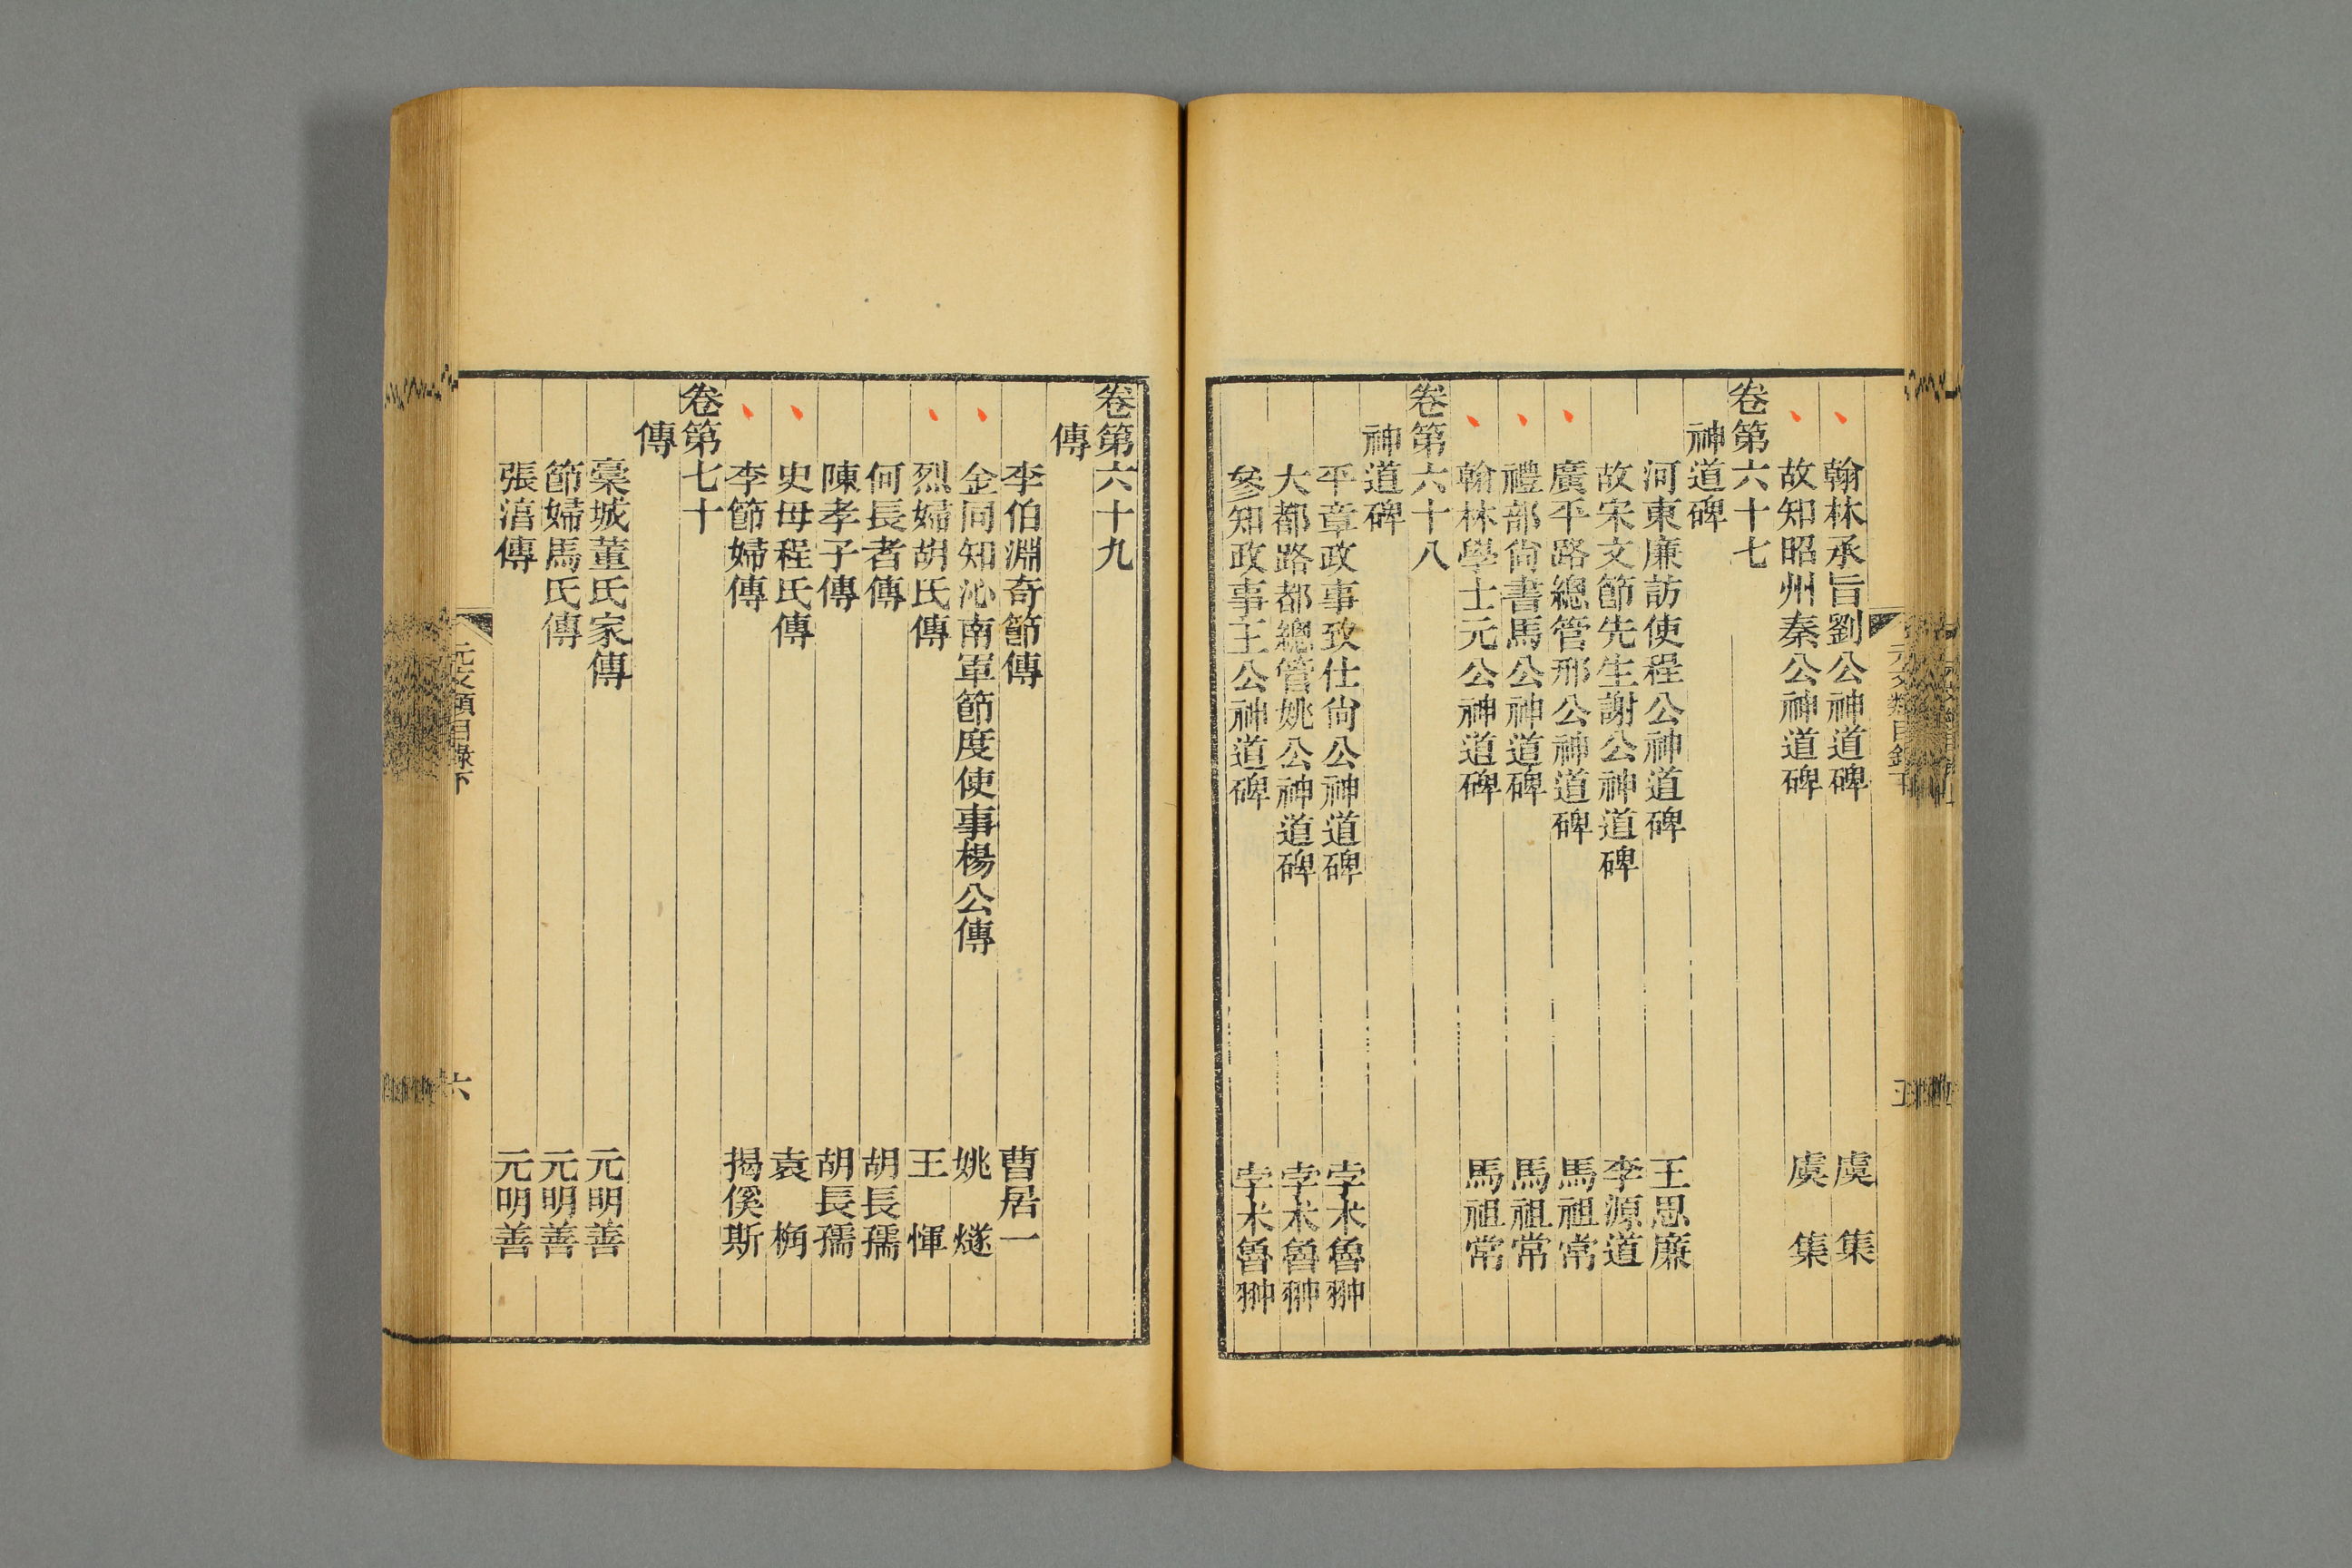 翰林承旨劉公神道碑 虞集
故知昭州秦公神道碑 虞集
卷第六十七
神道碑
河東廉訪使程公神道碑 王思廉
故宋文節先生謝公神道碑 李源道
廣平路總管邢公神道碑 馬祖常
禮部尙書馬公神道碑 馬祖常
翰林學士元公神道碑 馬祖常
卷第六十八
神道碑
平章政事致仕尙公神道碑 孛术魯翀
大都路都總管姚公神道碑 孛术魯翀
參知政事王公神道碑 孛术魯翀
卷第六十九
傳
李伯淵奇節傳 曹居一
金同知沁南軍節度使事楊公傳 姚燧
烈婦胡氏傳 王惲
何長者傳 胡長孺
陳孝子傳 胡長孺
史母程氏傳 袁桷
李節婦傳 揭傒斯
卷第七十
傳
藁城董氏家傳 元明善
節婦馬氏傳 元明善
張淯傳 元明善
元文類目錄下
六